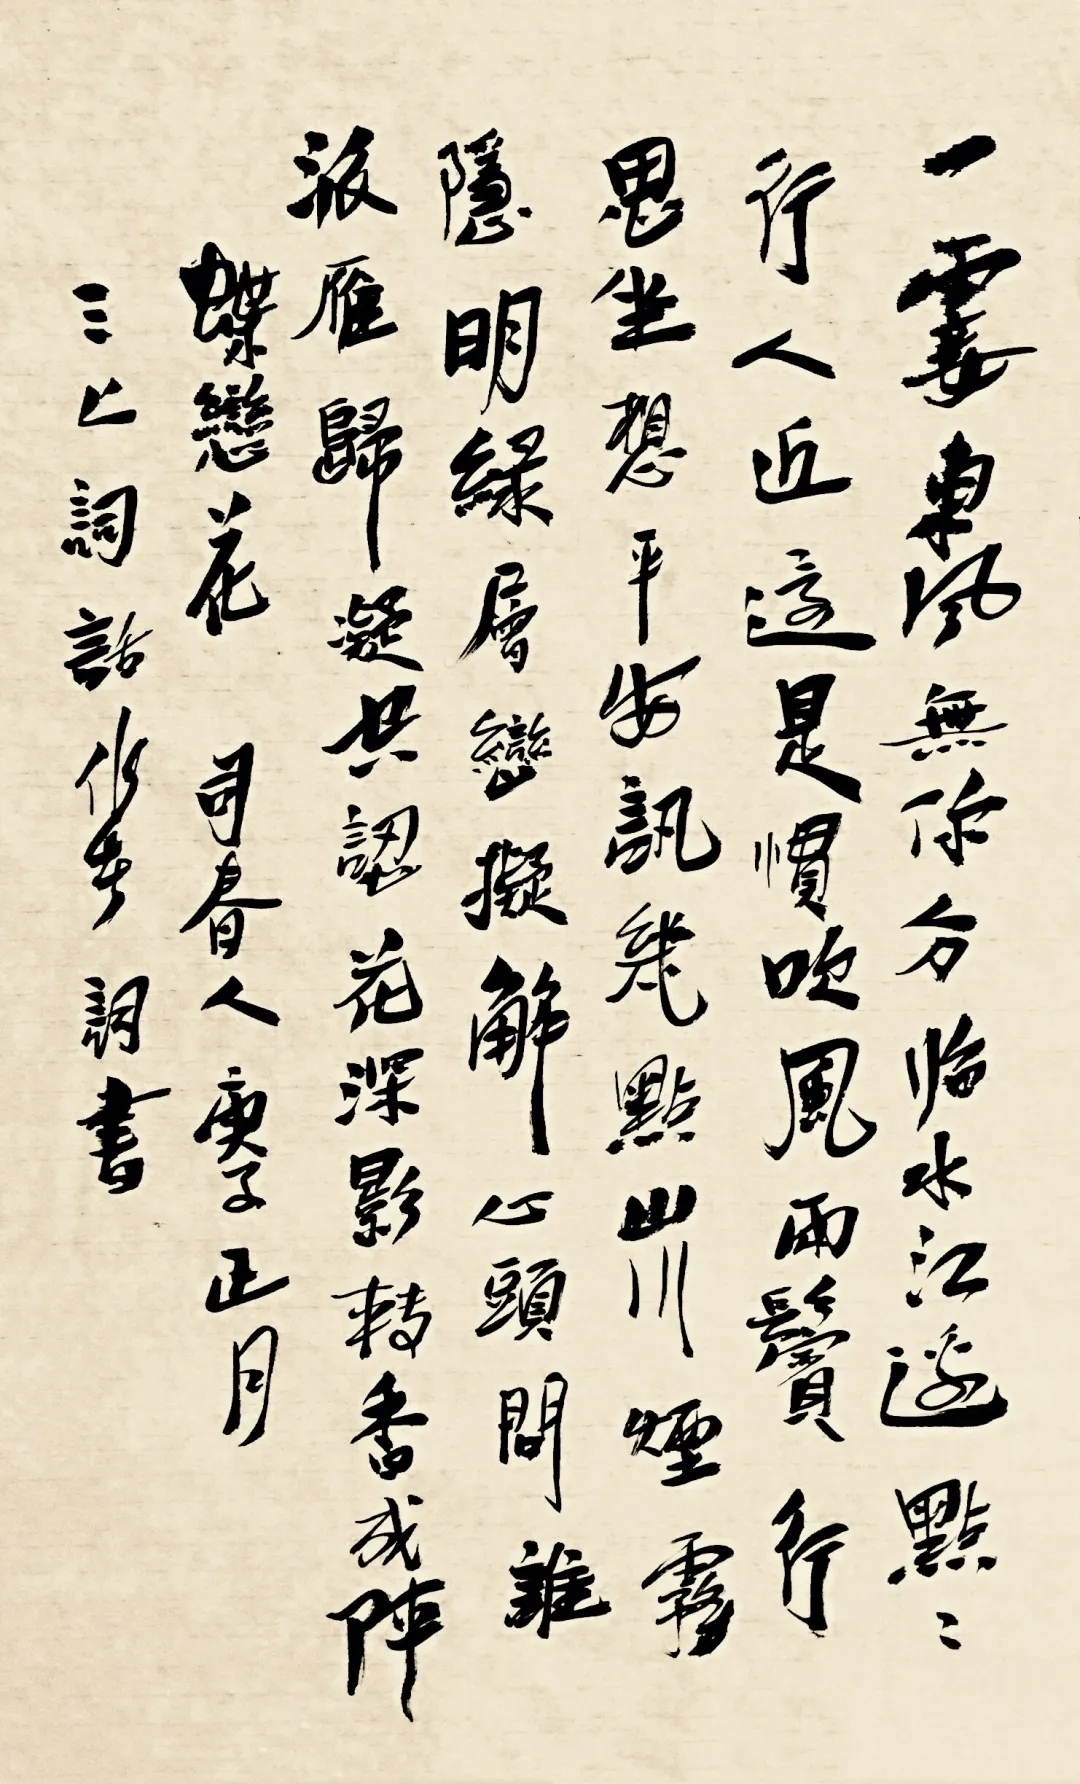 一霎東風無你分临水江邊點〻
行人近這是慣吹風雨鬢行
思坐想平安訊幾點山川煙霧
隱明綠層巒擬解心頭問誰
派雁歸凝共認花深影轉香成陣
蝶戀花 司春人庚子正月
三上詞話作者詞書